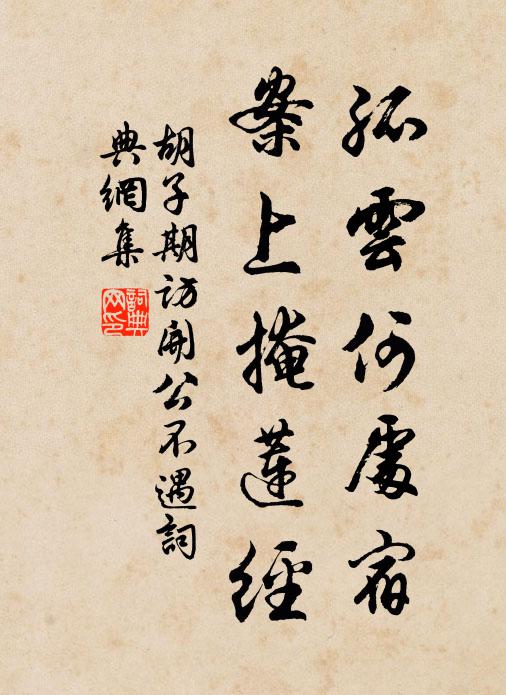 孤雲何處宿
案上掩蓮經
胡子期訪開公不遇詞
典網集
詞典
网印